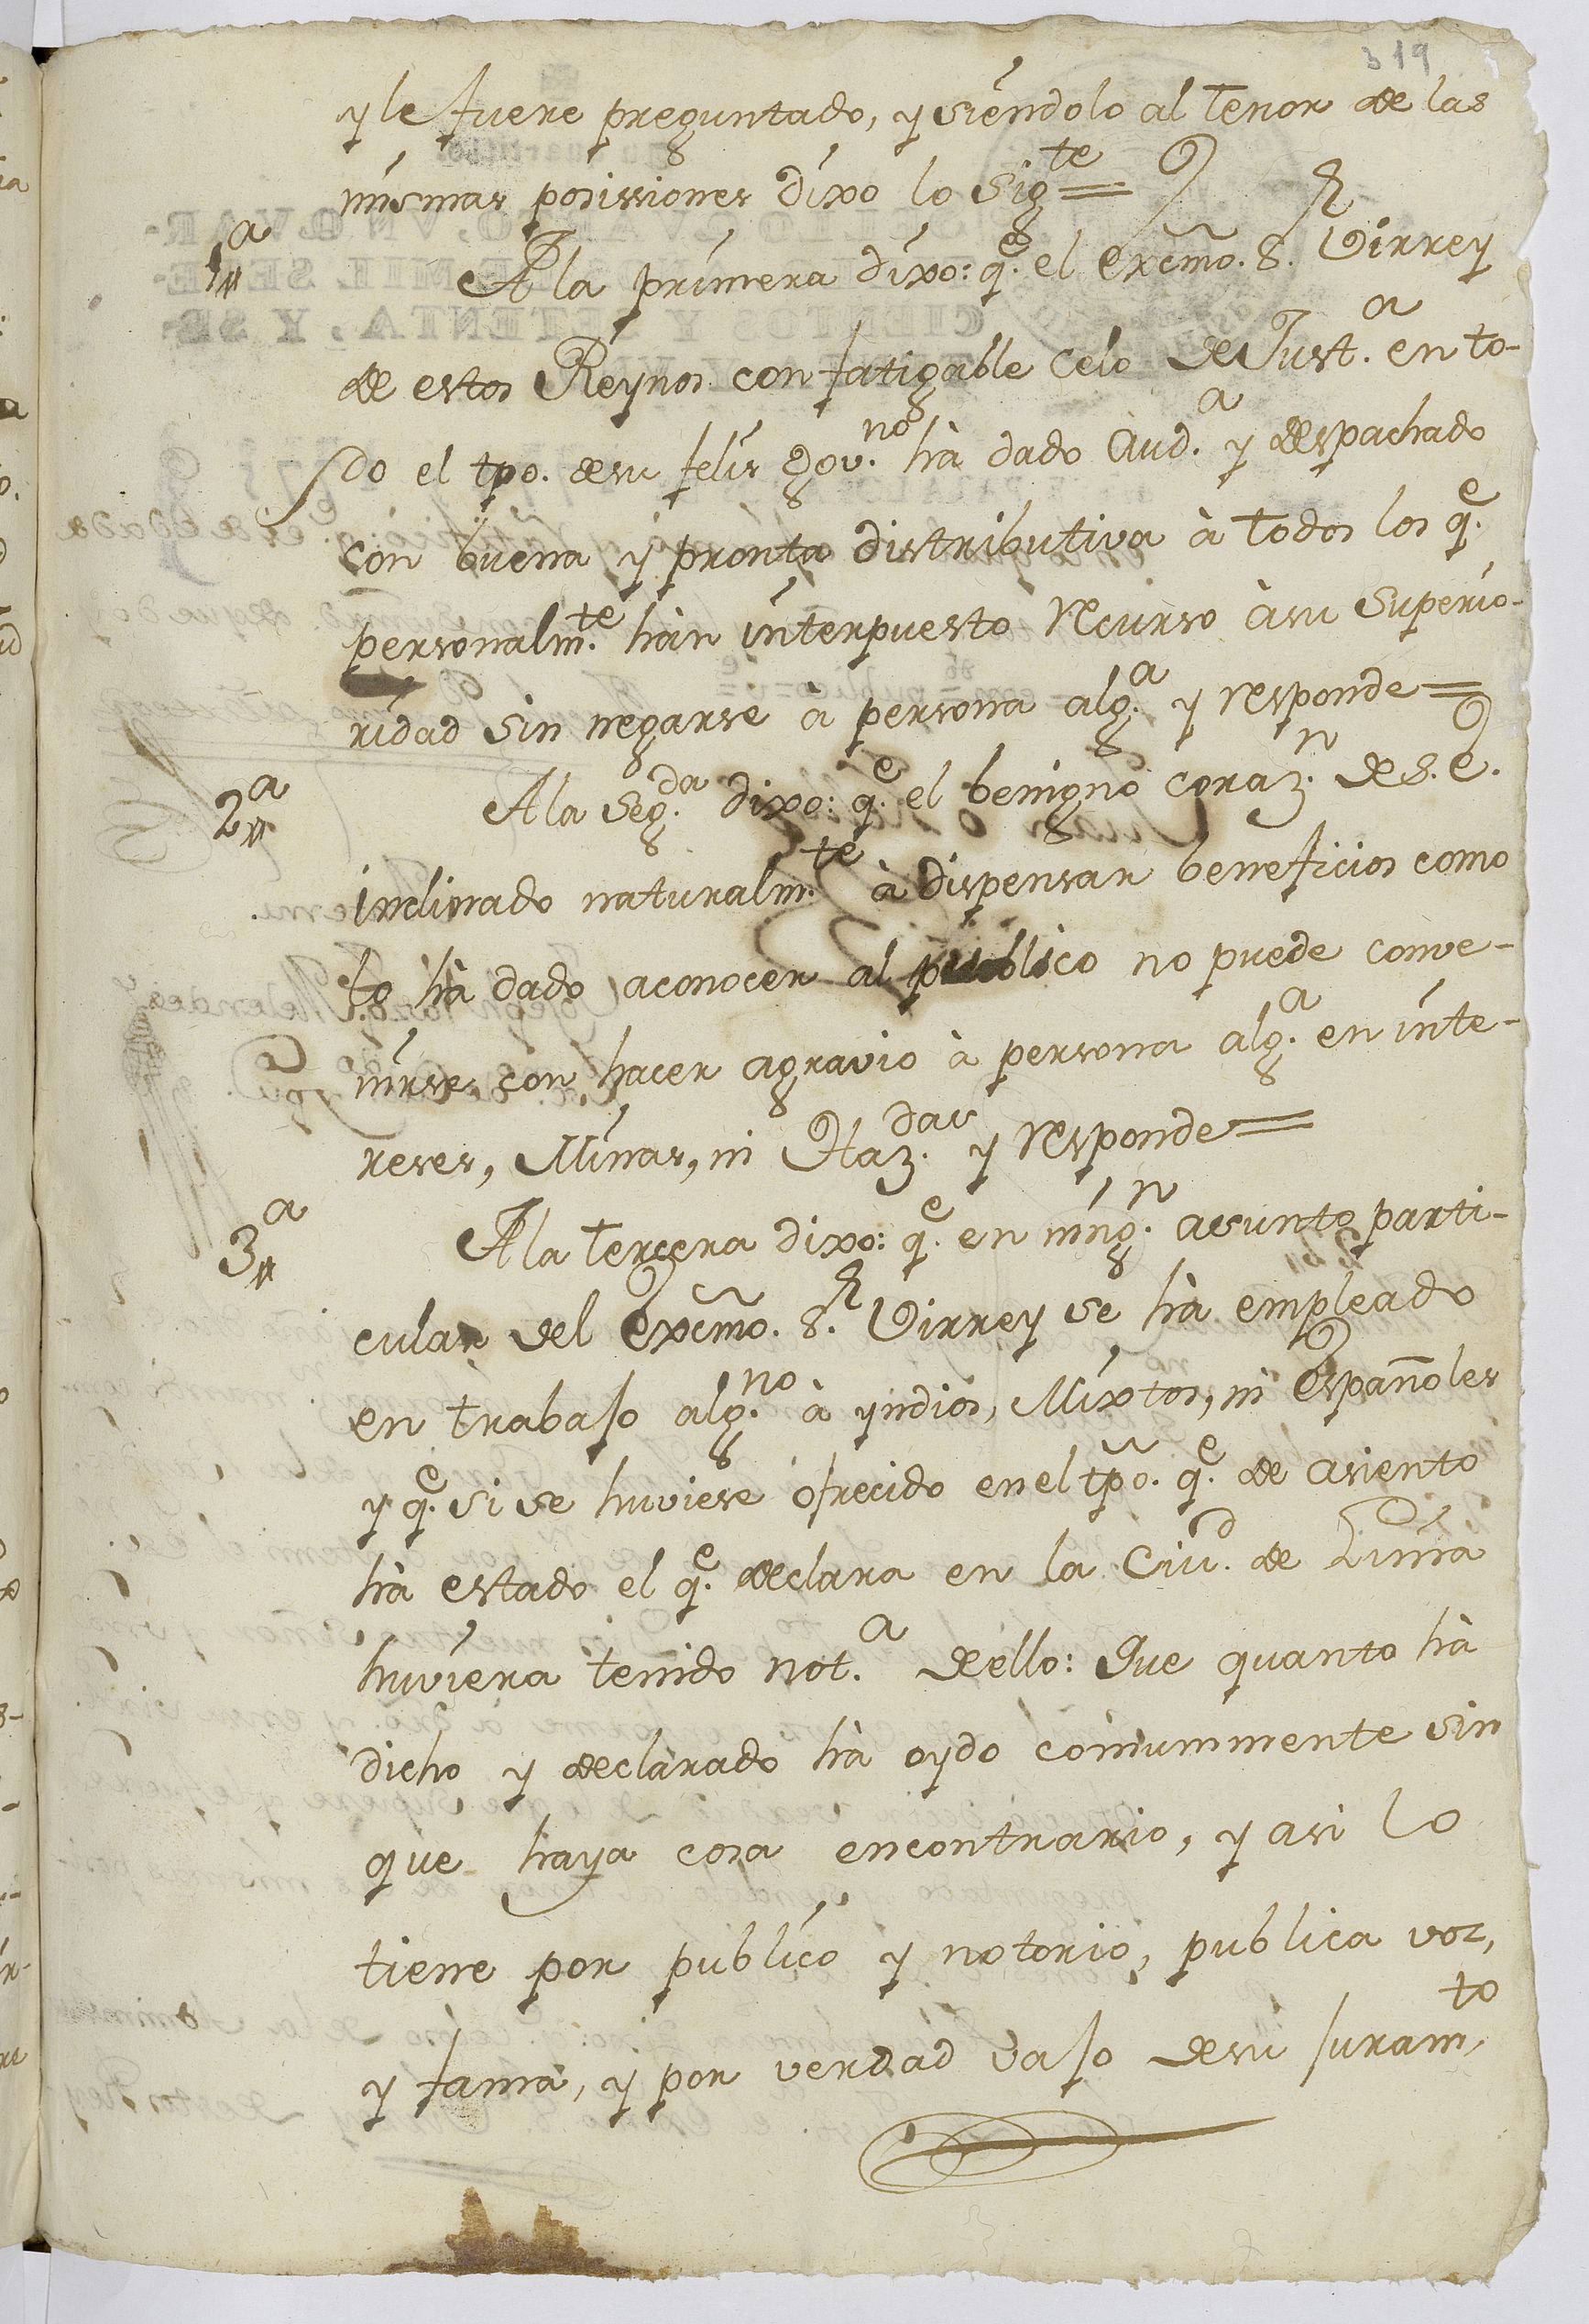 319
y le fuere preguntado, y siendolo al tenor de las
mismas posissiones dixo lo sig.te =
1.a A la primera dixo: q.e el Excmo. S.R Virrey
de estos Reynos con fatigable celo de Just.a en to-
do el tpo. de su felis gov.no hà dado Aud.a y despachado
con buena y pronta distributiva à todos los q.e
personalm.te hàn interpuesto recurso à su superio-
ridad sin negarse à persona alg.a y responde =
2.a A la seg.da dixo: q.e el benigno coraz.n de S. E.
inclinado naturalm.te à dispensar beneficios como
lo hà dado aconocer al publico no puede conve-
nirse, con hacer agravio à persona alg.a en inte-
reses, Minas, ni Haz.das y responde =
3.a A la tercera dixo: q.e en ning.n asunto parti-
cular del Excmo. S.R Virrey se hà empleado
en trabajo alg.no à yndios, Mixtos, ni Españoles
y q.e si se huviese ofrecido en el tpo. q.e de asiento
hà estado el q.e declara en la Ciu.d de Lima
huviera tenido not.a de ello: Que quanto hà
dicho y declarado hà oydo comummente sin
que haya cosa encontrario, y asi lo
tiene por publico y notorio, publica voz,
y fama, y por verdad vajo de su juram.to